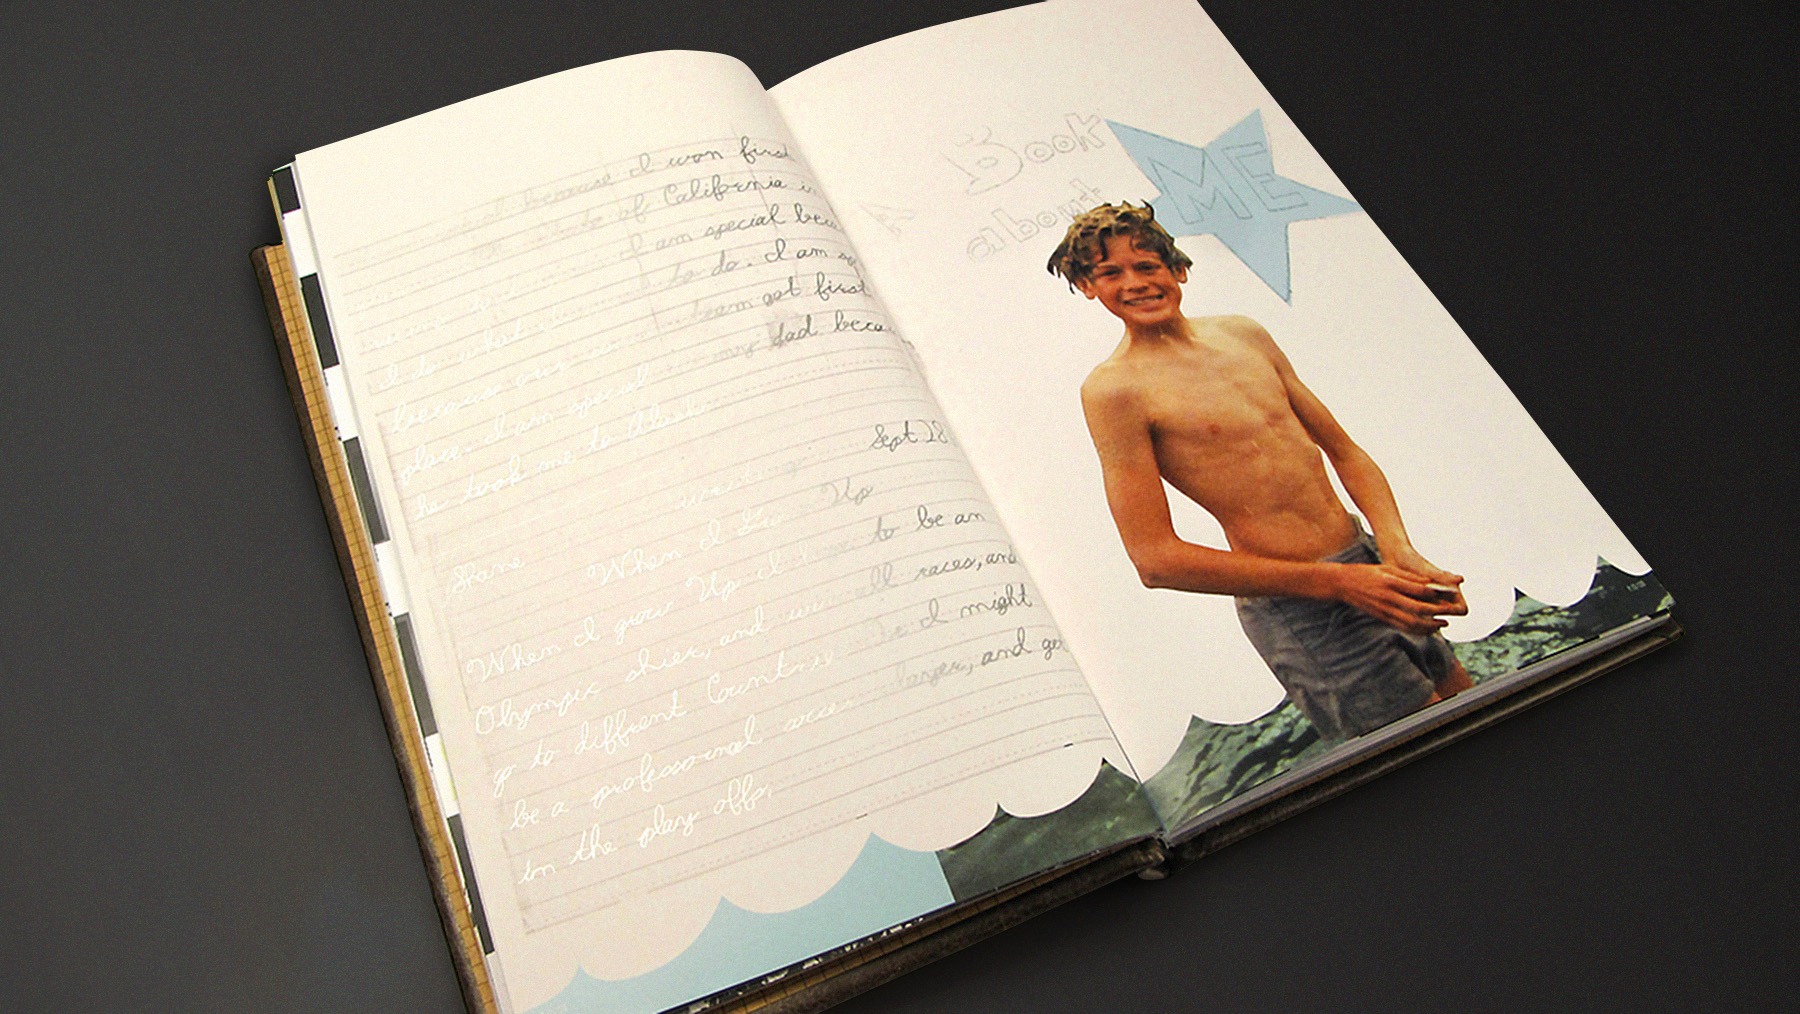 special because I won first
of California in
I am special beca
I do what to do. I am sp
because our team got first
place. I am special my dad beca
he took me to Alaska
Sept 28
Shane When I Grow Up
When I grow Up I to be an
Olympic skier, and win all races, and
go to diffrent Countries I might
be a professional soccer player, and go
to the play offs.
A Book
about ME